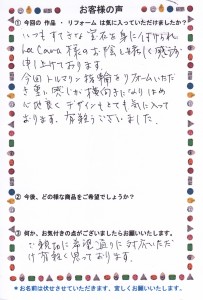 お客様の声
① 今回の 作品 ・ リフォーム は気に入っていただけましたか？
いつもすてきな宝石を身につけられ
La Cana 様のお陰と嬉しく感謝
申し上げております。
今回トルマリン指輪をリフォームいただ
き 感じが横向きになりはめ
心地良くデザインもとても気に入って
おります。有難うございました。
② 今後、どの様な商品をご希望でしょうか？
③ 何か、お気付きの点がございましたらお願いいたします。
ご親切に希望通りに対応いただ
け有難く思っております。
＊お名前は伏せさせていただきます、宜しくお願いいたします。